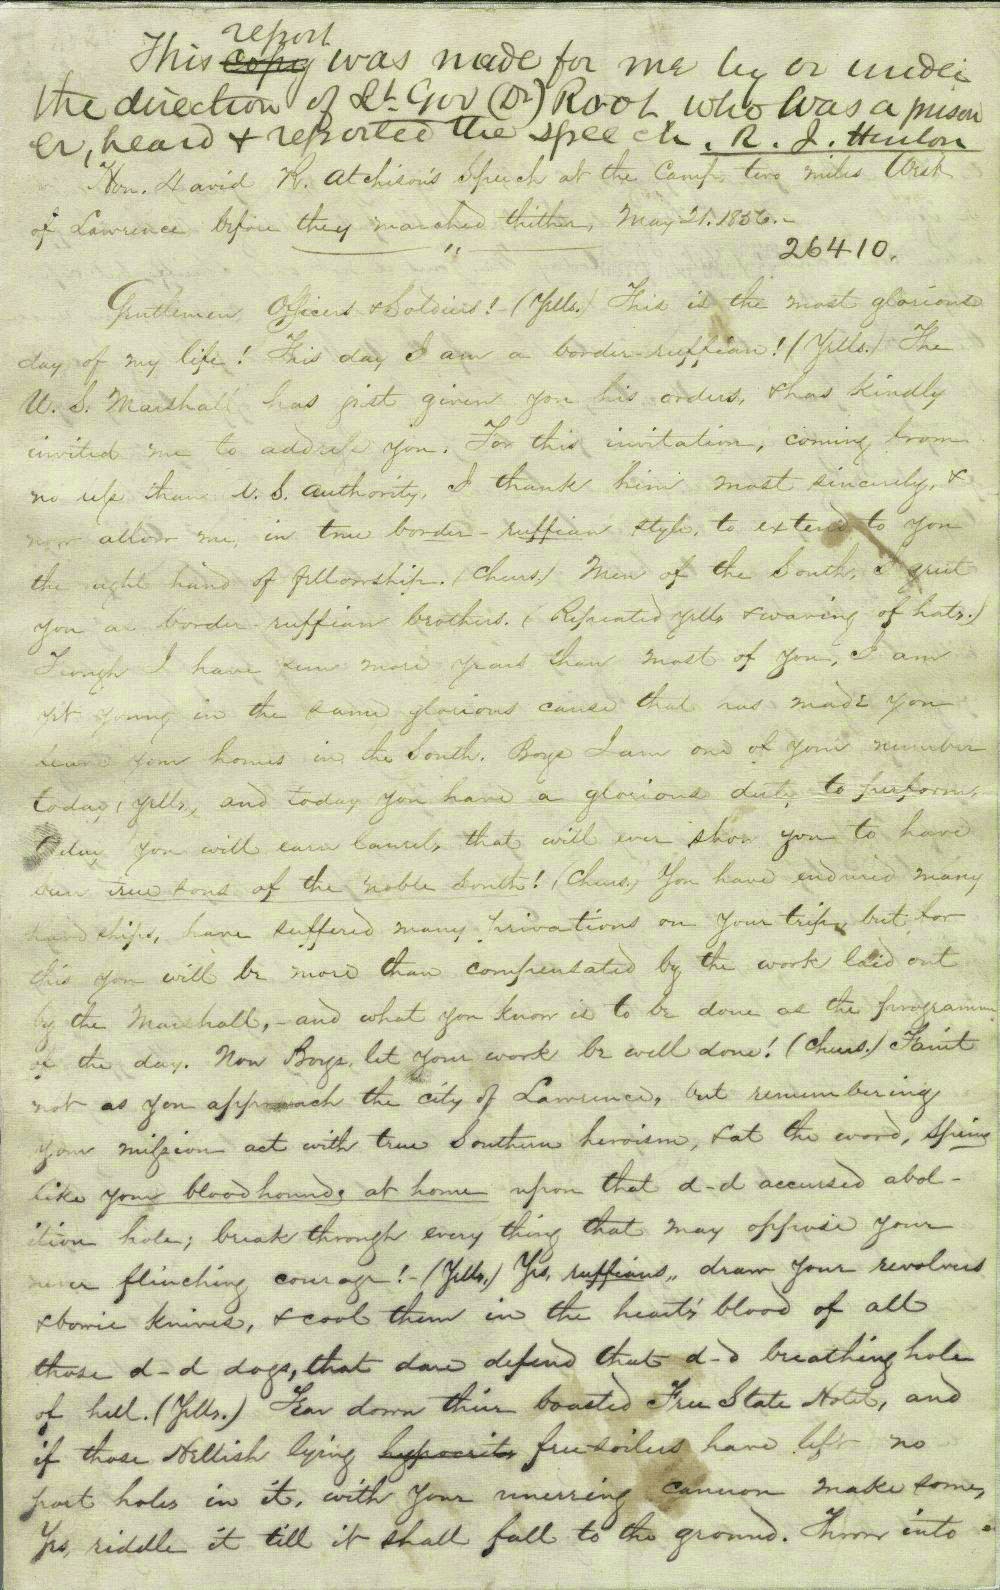 report
This copy was made for me by or under
the direction of Lt. Gov (Dr) Root who was a prison
er, heard & reported the speech. R. J. Hinton
Hon. David R. Atchison's Speech at the Camp, two miles West
of Lawrence before they marched thither, May 21. 1856.-
26410.
Gentlemen, Officers & Soldiers!- (Yells.) This is the most glorious
day of my life! This day I am a border-ruffian! (Yells.) The
U. S. Marshall has just given you his orders, & has kindly
invited me to address you. For this invitation, coming from
no less than U. S. authority, I thank him most sincerely, &
now allow me, in true border-ruffian style, to extend to you
the right hand of fellowship. (Cheers.) Men of the South, I greet
you as border-ruffian brothers. (Repeated yells & waving of hats.)
Though I have seen more years than most of you, I am
yet young in the same glorious cause that has made you
leave your homes in the South. Boys I am one of your number
today (Yells,) and today you have a glorious duty to perform,
today you will earn laurels that will ever show you to have
been true sons of the noble South! (Cheers.) You have endured many
hardships, have suffered many privations on your trips, but for
this you will be more than compensated by the work laid out
by the Marshall,- and what you know is to be done as the programme
of the day. Now Boys, let your work be well done! (Cheers.) Faint
not as you approach the city of Lawrence, but remembering
your mission act with true Southern heroism, & at the word, spring
like your bloodhounds at home upon that d-d accursed abol-
ition hole; break through every thing that may oppose your
never flinching courage!- (Yells.) Yes, ruffians, draw your revolvers
& bowie knives, & cool them in the heart's blood of all
those d-d dogs, that dare defend that d-d breathing hole
of hell. (Yells.) Tear down their boasted Free State Hotel, and
if those Hellish lying hypocrits free-soilers have left no
port holes in it, with your unerring cannon make some,
Yes, riddle it till it shall fall to the ground. Throw into